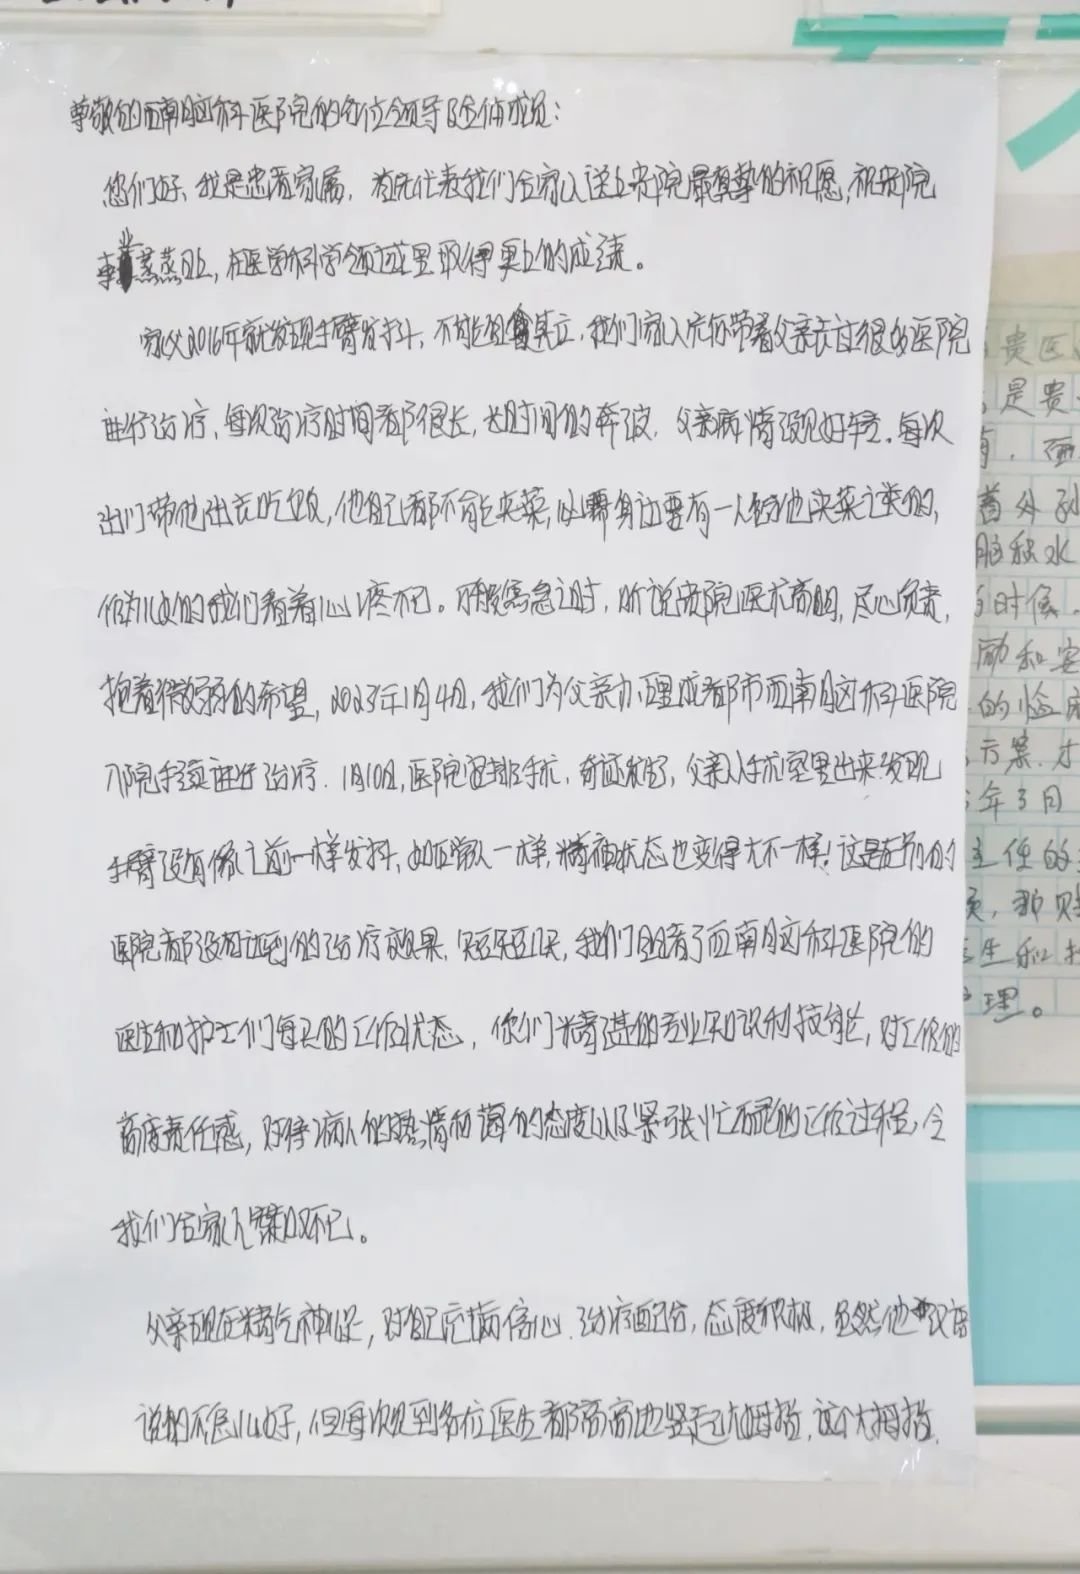 尊敬的西南脑科医院的各位领导及全体成员：
您们好、我是患者家属，首先代表我们全家人送上贵院最真挚的祝愿，祝贵院
蒸蒸日上，在医学科学领域里取得更上的成绩。
家父2016年就发现手臂发抖，不能自立，我们家人元你带着父亲去过很多医院
进行治疗、每次治疗时间都很长，长时间的奔波，父亲病情没见好转。每次
出门带他出去吃饭，他自己都不能夹菜，必需身边要有一人给他夹菜之类的，
作为儿女的我们看着心疼不已。万般焦急之时，听说贵院医术高明，尽心负责，
抱着微弱的希望，2023年1月4日，我们为父亲办理成都市西南脑科医院
入院手续进行治疗．1月10日，医院安排手术，奇迹发生了，父亲从手术室里出来发现
手臂没有像之前一样发抖，如正常人一样，精神状态也变得大不一样！这是在别的
医院都没有达到的治疗效果，短短几天，我们目睹了西南脑科医院的
医生和护士们每天的工作状态，你们精湛的专业知识和技能，对工作的
高度责任感，对待病人的热情和蔼的态度以及紧张忙碌的工作过程，令
我们全家人钦佩不已。
父亲现在精气神很足，对自己充满信心．治疗配合，态度积极，虽然他汉语
说的不怎么好，但每次见到各位医生都高高地竖起大拇指，这个大拇指，
贵医
是贵
，面
着外孙
脑积水
时候．
励和安
的临床
方案．才
年3月
主任的
，那
生和护
理。